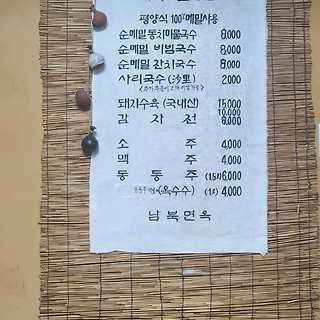 평양식 100% 메밀사용
순메밀 동치미물국수 8,000
순메밀 비빔국수 8,000
순메밀 잔치국수 8,000
사리국수 (沙里) 2,000
돼지수육 (국내산) 15,000
10,000
감자전 6,000
소주 4,000
맥주 4,000
동동주 (1되) 6,000
(옥수수) 4,000
남북면옥